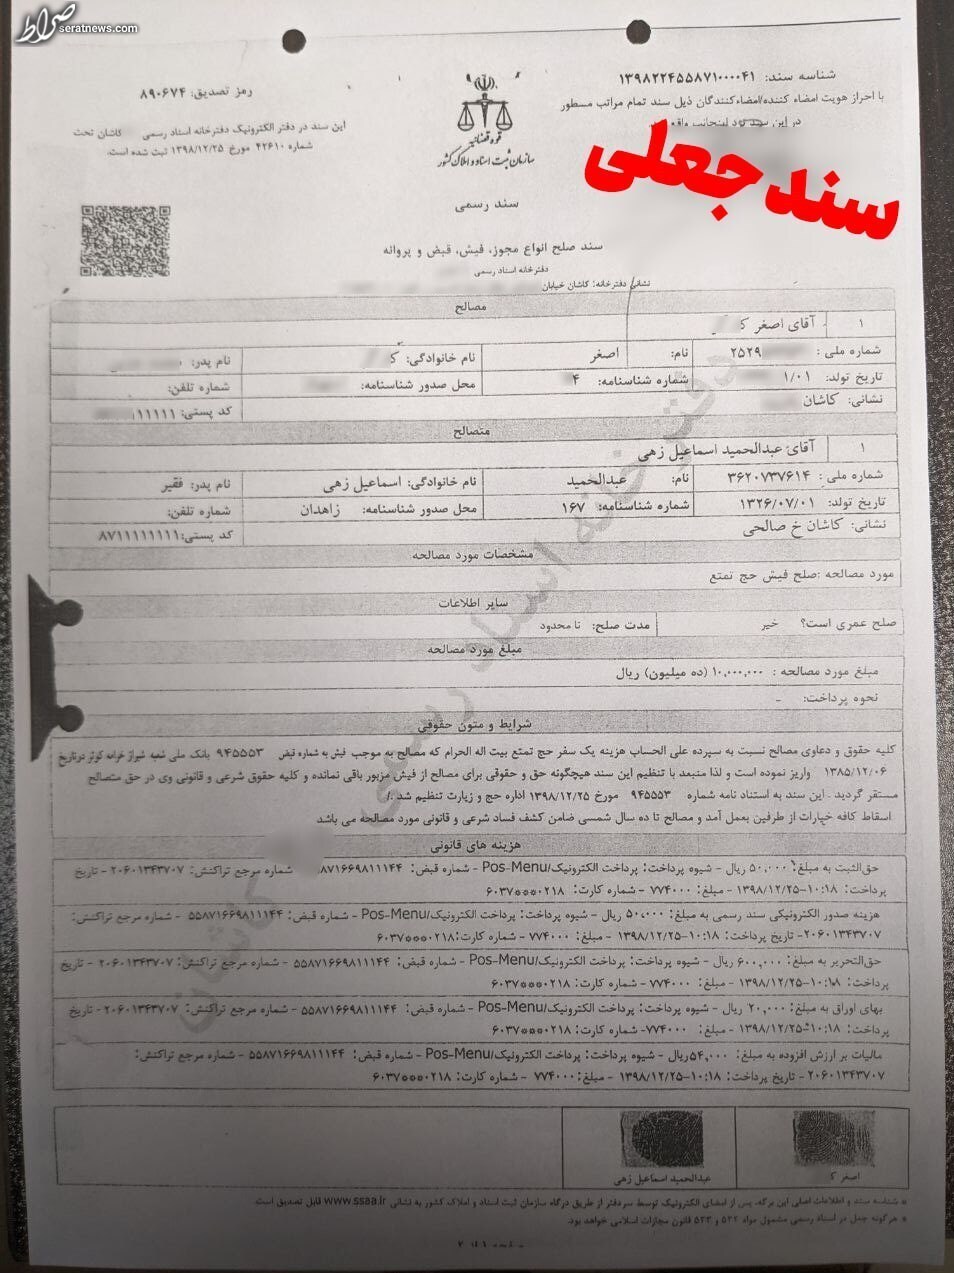 صراط
seratnews.com
شناسه سند: ۱۳۹۸۲۲۴۵۵۸۷۱۰۰۰۰۴۱
با احراز هویت امضاء کننده/امضاءکنندگان ذیل سند تمام مراتب مسطور
در این سند
سند جعلی
قوه قضائیه
سازمان ثبت اسناد و املاک کشور
رمز تصدیق: ۸۹۰۶۷۴
این سند در دفتر الکترونیک دفترخانه اسناد رسمی کاشان تحت
شماره ۴۲۶۱۰ مورخ ۱۳۹۸/۱۲/۲۵ ثبت شده است.
سند رسمی
سند صلح انواع مجوز، فیش، قبض و پروانه
دفترخانه اسناد رسمی
نشانی دفترخانه: کاشان خیابان
مصالح
۱ آقای اصغر ک
شماره ملی : ۲۵۲۹ نام: اصغر نام خانوادگی: ک نام پدر:
تاریخ تولد: ۱/۰۱ شماره شناسنامه: ۴ محل صدور شناسنامه: شماره تلفن:
نشانی: کاشان کد پستی: ۱۱۱۱۱۱
متصالح
۱ آقای عبدالحمید اسماعیل زهی
شماره ملی : ۳۶۲۰۷۳۷۶۱۴ نام: عبدالحمید نام خانوادگی: اسماعیل زهی نام پدر: فقیر
تاریخ تولد: ۱۳۲۶/۰۷/۰۱ شماره شناسنامه: ۱۶۷ محل صدور شناسنامه: زاهدان شماره تلفن:
نشانی: کاشان خ صالحی کد پستی: ۸۷۱۱۱۱۱۱۱۱
مشخصات مورد مصالحه
مورد مصالحه :صلح فیش حج تمتع
سایر اطلاعات
صلح عمری است؟ خیر مدت صلح: نا محدود
مبلغ مورد مصالحه
مبلغ مورد مصالحه : ۱۰,۰۰۰,۰۰۰ (ده میلیون) ریال
نحوه پرداخت: -
شرایط و متون حقوقی
کلیه حقوق و دعاوی مصالح نسبت به سپرده علی الحساب هزینه یک سفر حج تمتع بیت اله الحرام که مصالح به موجب فیش به شماره قبض ۹۴۵۵۵۳ بانک ملی شعبه شیراز خرانه کوثر درتاریخ
۱۳۸۵/۱۲/۰۶ واریز نموده است و لذا منبعد با تنظیم این سند هیچگونه حق و حقوقی برای مصالح از فیش مزبور باقی نمانده و کلیه حقوق شرعی و قانونی وی در حق متصالح
مستقر گردید . این سند به استناد نامه شماره ۹۴۵۵۵۳ مورخ ۱۳۹۸/۱۲/۲۵ اداره حج و زیارت تنظیم شد ./
اسقاط کافه خیارات از طرفین بعمل آمد و مصالح تا ده سال شمسی ضامن کشف فساد شرعی و قانونی مورد مصالحه می باشد
هزینه های قانونی
حق‌الثبت به مبلغ: ۵۰,۰۰۰ ریال - شیوه پرداخت: پرداخت الکترونیک/Pos-Menu - شماره قبض: ۸۷۱۶۶۹۸۱۱۱۴۴ شماره مرجع تراکنش: ۲۰۶۰۱۳۴۳۷۰۷ - تاریخ
پرداخت: ۱۰:۱۸-۱۳۹۸/۱۲/۲۵ - مبلغ: ۷۷۴۰۰۰ - شماره کارت: ۶۰۳۷***۰۲۱۸
هزینه صدور الکترونیکی سند رسمی به مبلغ: ۵۰,۰۰۰ ریال - شیوه پرداخت: پرداخت الکترونیک/Pos-Menu - شماره قبض: ۵۵۸۷۱۶۶۹۸۱۱۱۴۴ - شماره مرجع تراکنش:
۲۰۶۰۱۳۴۳۷۰۷- تاریخ پرداخت: ۱۰:۱۸-۱۳۹۸/۱۲/۲۵ - مبلغ: ۷۷۴۰۰۰ - شماره کارت: ۶۰۳۷***۰۲۱۸
حق‌التحریر به مبلغ: ۶۰۰,۰۰۰ ریال - شیوه پرداخت: پرداخت الکترونیک/Pos-Menu - شماره قبض: ۵۵۸۷۱۶۶۹۸۱۱۱۴۴ - شماره مرجع تراکنش: ۲۰۶۰۱۳۴۳۷۰۷ - تاریخ
پرداخت: ۱۰:۱۸-۱۳۹۸/۱۲/۲۵ - مبلغ: ۷۷۴۰۰۰ - شماره کارت: ۶۰۳۷***۰۲۱۸
بهای اوراق به مبلغ: ۲۰,۰۰۰ ریال - شیوه پرداخت: پرداخت الکترونیک/Pos-Menu - شماره قبض: ۵۵۸۷۱۶۶۹۸۱۱۱۴۴ - شماره مرجع تراکنش: ۲۰۶۰۱۳۴۳۷۰۷ - تاریخ
پرداخت: ۱۰:۱۸-۱۳۹۸/۱۲/۲۵ - مبلغ: ۷۷۴۰۰۰- شماره کارت: ۶۰۳۷***۰۲۱۸
مالیات بر ارزش افزوده به مبلغ: ۵۴,۰۰۰ریال - شیوه پرداخت: پرداخت الکترونیک/Pos-Menu - شماره قبض: ۵۵۸۷۱۶۶۹۸۱۱۱۴۴ - شماره مرجع تراکنش:
۲۰۶۰۱۳۴۳۷۰۷ - تاریخ پرداخت: ۱۰:۱۸-۱۳۹۸/۱۲/۲۵ - مبلغ: ۷۷۴۰۰۰ - شماره کارت: ۶۰۳۷***۰۲۱۸
اصغر ک عبدالحمید اسماعیل زهی
* شناسه سند و اطلاعات اصلی این برگه، پس از امضای الکترونیک توسط سردفتر از طریق درگاه سازمان ثبت اسناد و املاک کشور به نشانی www.ssaa.ir قابل تصدیق است.
* هرگونه جعل در اسناد رسمی مشمول مواد ۵۳۲ و ۵۳۳ قانون مجازات اسلامی خواهد بود.
دفترخانه اسناد رسمی کاشان